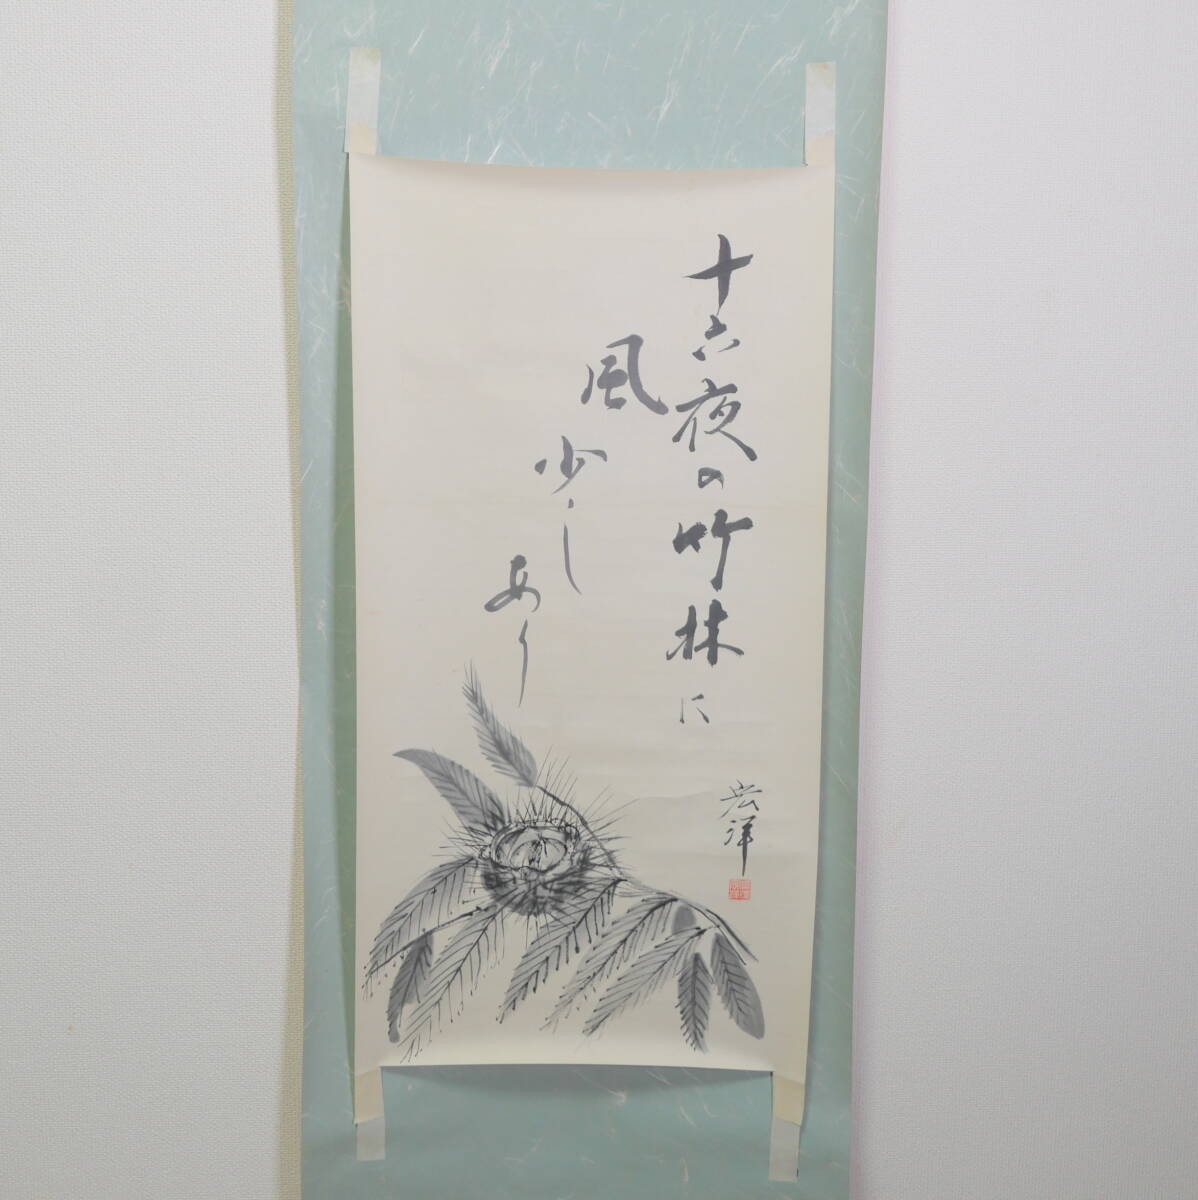 十六夜の竹林に
風
少し
あり
宏洋